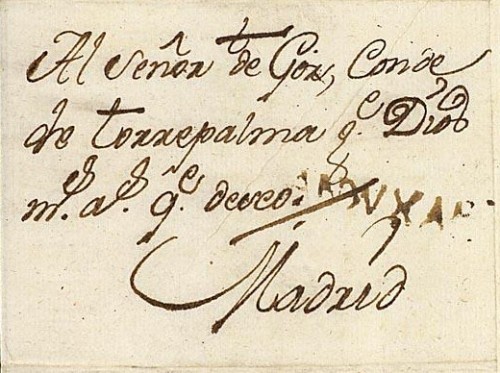 Al Señor de Gor, Conde
de Torrepalma q.e Dios
m.s a.s q.e deseo. ANDVXAR
Madrid